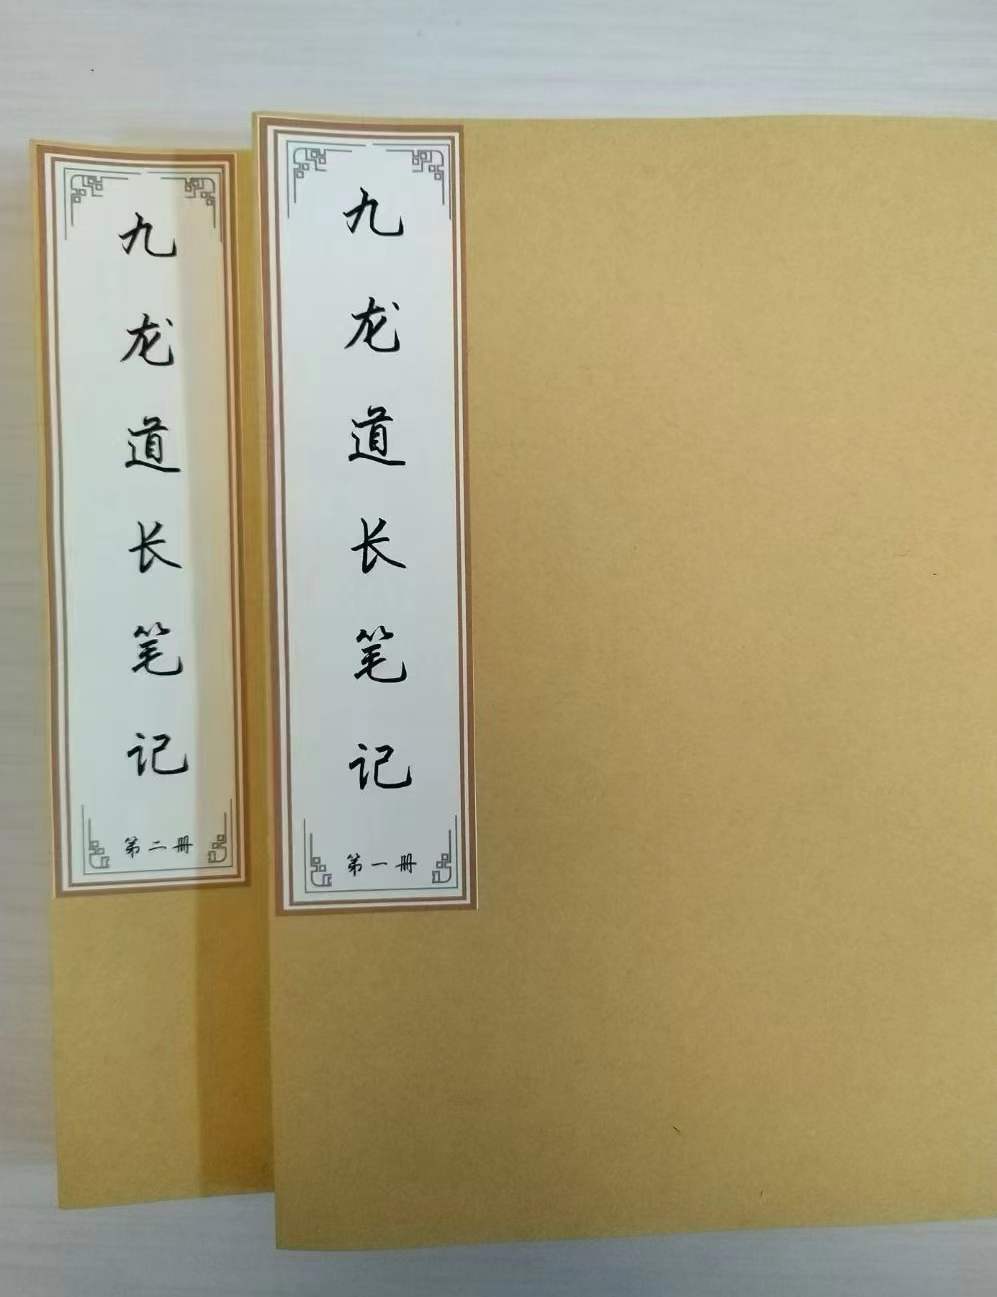 九龙道长笔记
第二册
九龙道长笔记
第一册